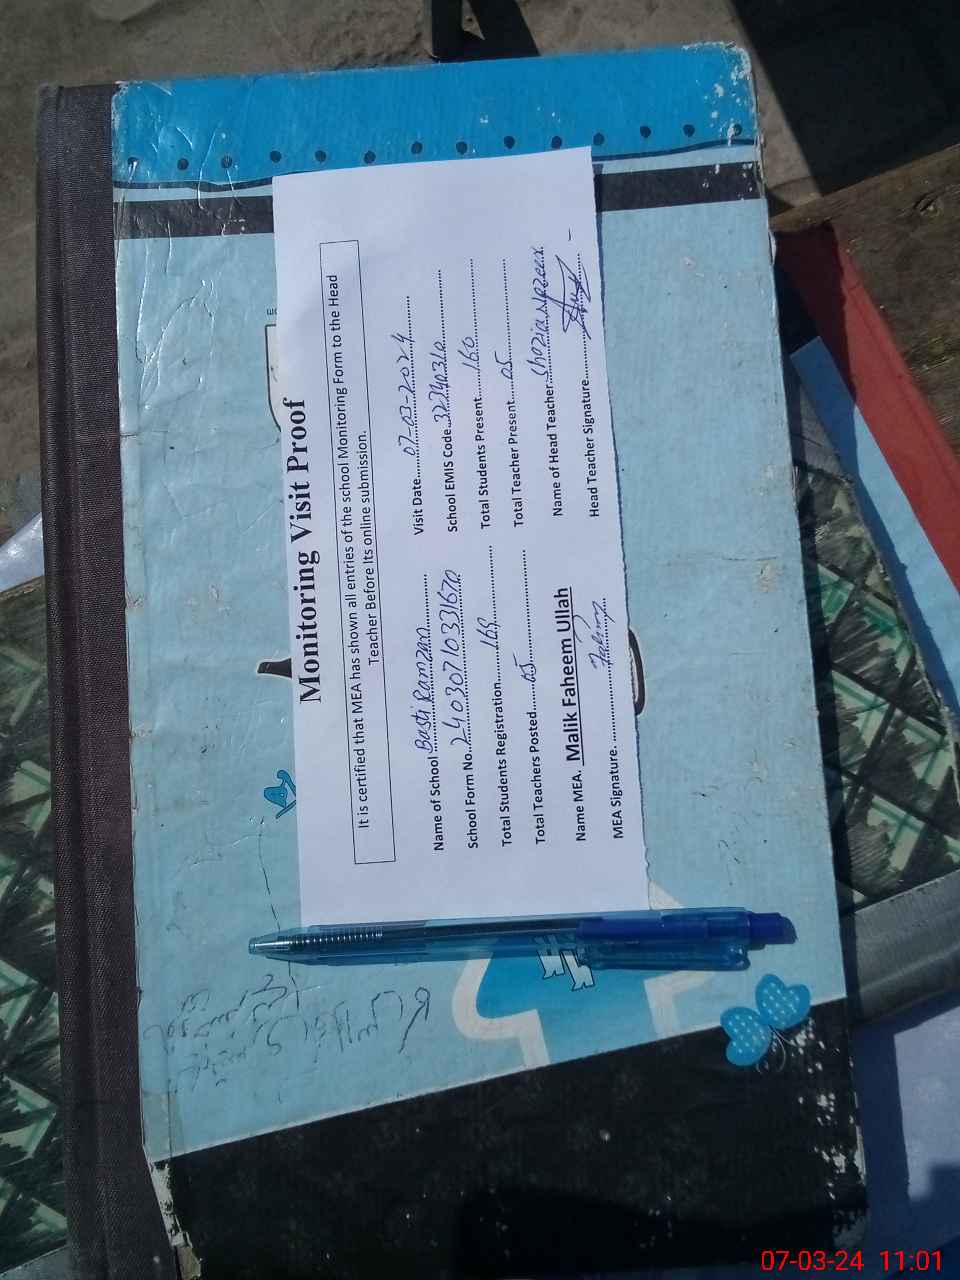 Monitoring Visit Proof
It is certified that MEA has shown all entries of the school Monitoring Form to the Head
Teacher Before Its online submission.
Name of School Basti Ramzan
Visit Date 07-03-2024
School Form No. 24030710331670
School EMIS Code 32340310
Total Students Registration 169
Total Students Present 160
Total Teachers Posted 05
Total Teacher Present 05
Name MEA. Malik Faheem Ullah
Name of Head Teacher Shazia Nazeer
MEA Signature. Faheem
Head Teacher Signature
07-03-24 11:01